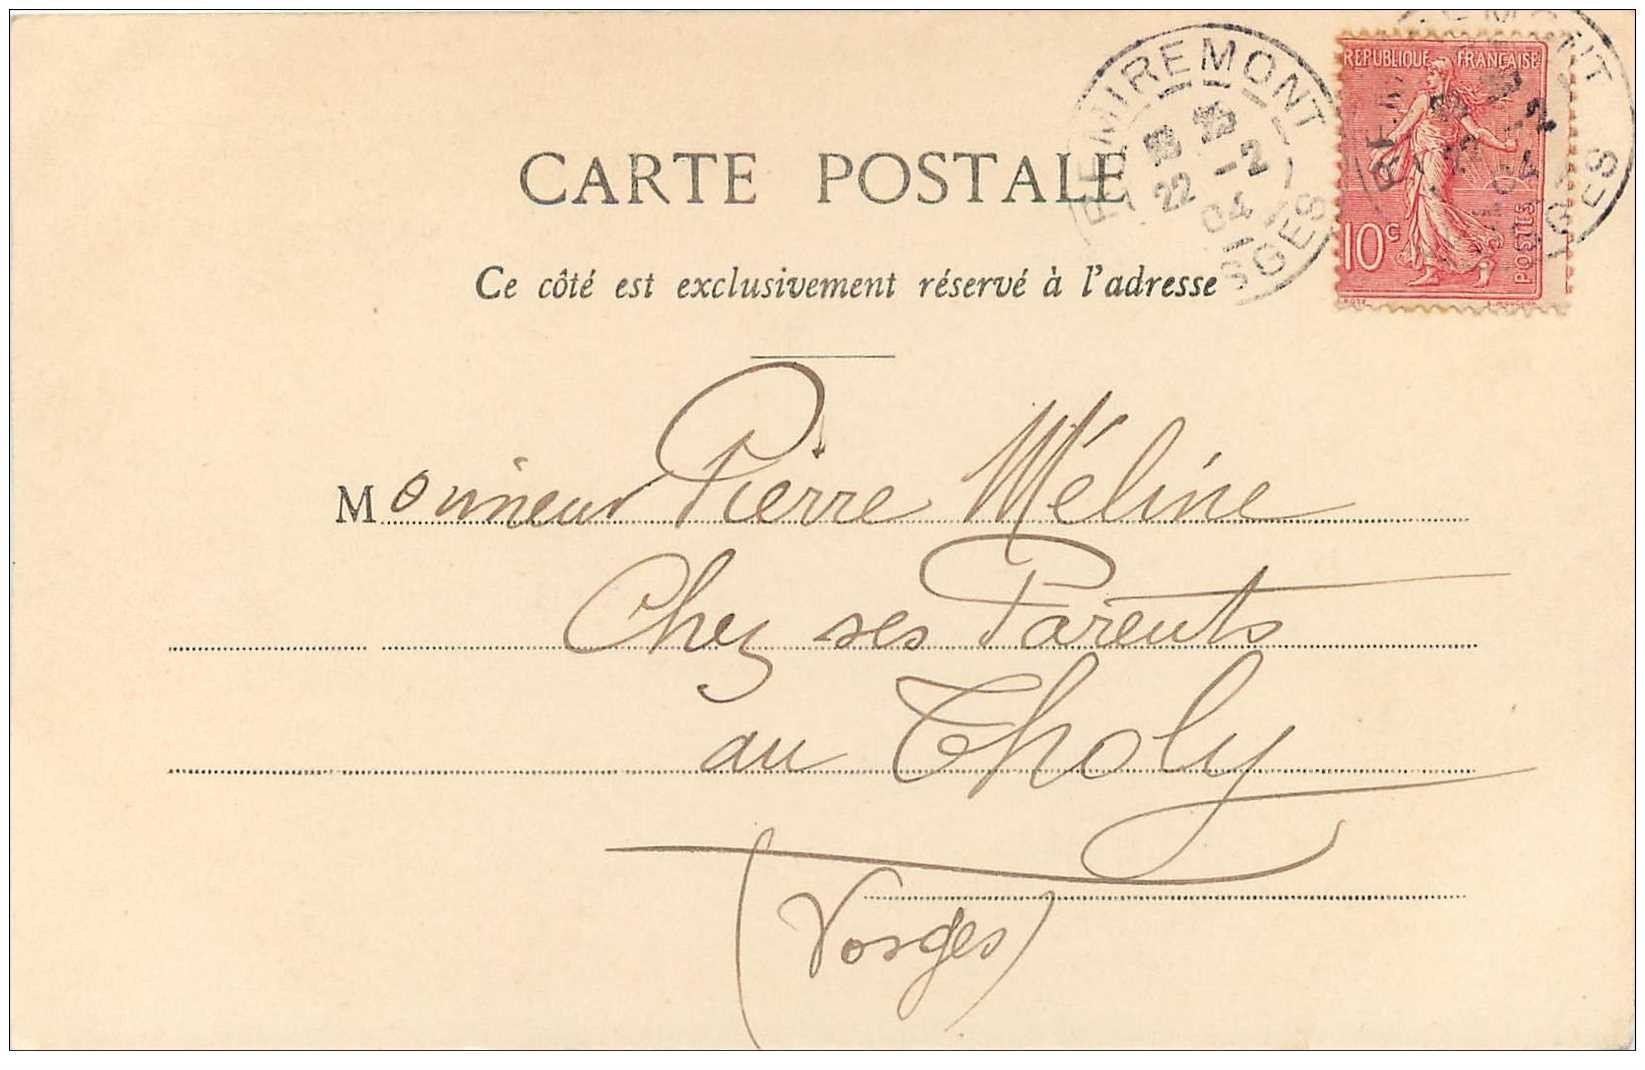 REMIREMONT
22 -2
04
VOSGES
REPUBLIQUE FRANCAISE
10c
POSTES
CARTE POSTALE
Ce côté est exclusivement réservé à l'adresse
Monsieur Pierre Méline
Chez ses Parents
au Tholy
(Vosges)